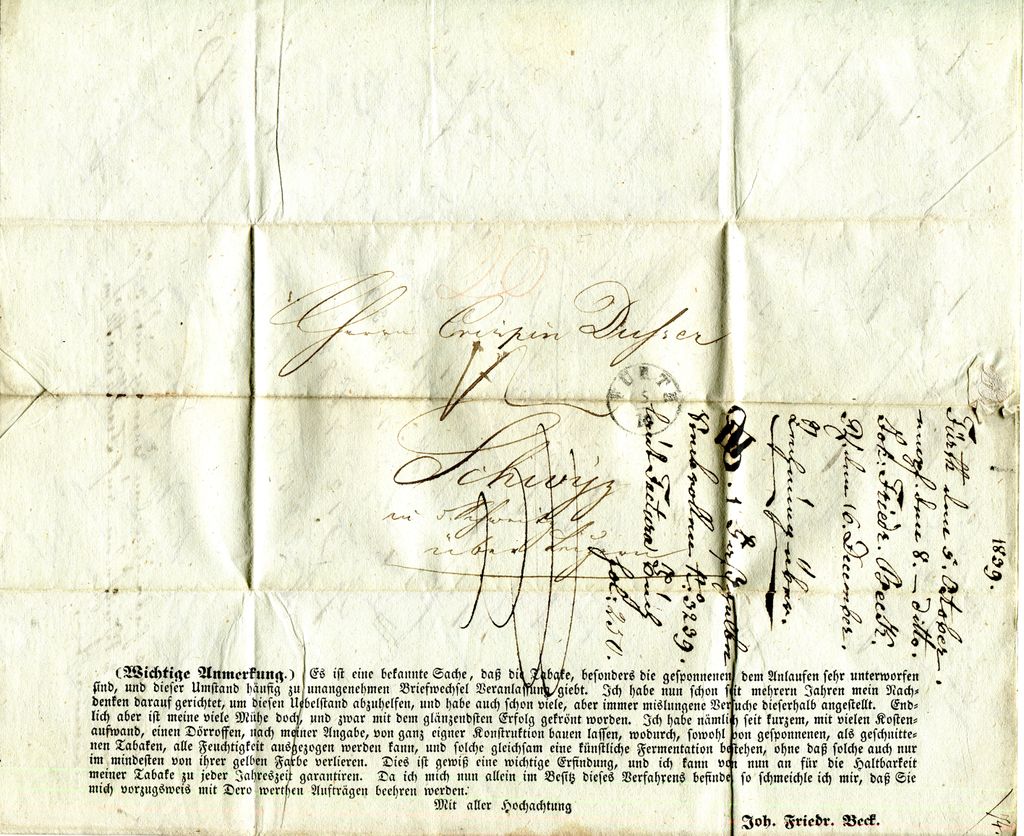 Herrn Crispin Dusser
FÜRTH
Schwÿz
in Schweiz
über Luzern
1839.
Fürth den 5. October.
8. — ditto.
Joh: Friedr. Beck.
16. December.
No. 3239.
laut Factura Buch
fol: 250.
(Wichtige Anmerkung.) Es ist eine bekannte Sache, daß die Tabake, besonders die gesponnenen dem Anlaufen sehr unterworfen
sind, und dieser Umstand häufig zu unangenehmen Briefwechsel Veranlassung giebt. Ich habe nun schon seit mehrern Jahren mein Nach-
denken darauf gerichtet, um diesen Uebelstand abzuhelfen, und habe auch schon viele, aber immer mislungene Versuche dieserhalb angestellt. End-
lich aber ist meine viele Mühe doch, und zwar mit dem glänzendsten Erfolg gekrönt worden. Ich habe nämlich seit kurzem, mit vielen Kosten-
aufwand, einen Dörroffen, nach meiner Angabe, von ganz eigner Konstruktion bauen lassen, wodurch, sowohl von gesponnenen, als geschnitte-
nen Tabaken, alle Feuchtigkeit ausgezogen werden kann, und solche gleichsam eine künstliche Fermentation bestehen, ohne daß solche auch nur
im mindesten von ihrer gelben Farbe verlieren. Dies ist gewiß eine wichtige Erfindung, und ich kann von nun an für die Haltbarkeit
meiner Tabake zu jeder Jahreszeit garantiren. Da ich mich nun allein im Besitz dieses Verfahrens befinde so schmeichle ich mir, daß Sie
mich vorzugsweis mit Dero werthen Aufträgen beehren werden.
Mit aller Hochachtung
Joh. Friedr. Beck.